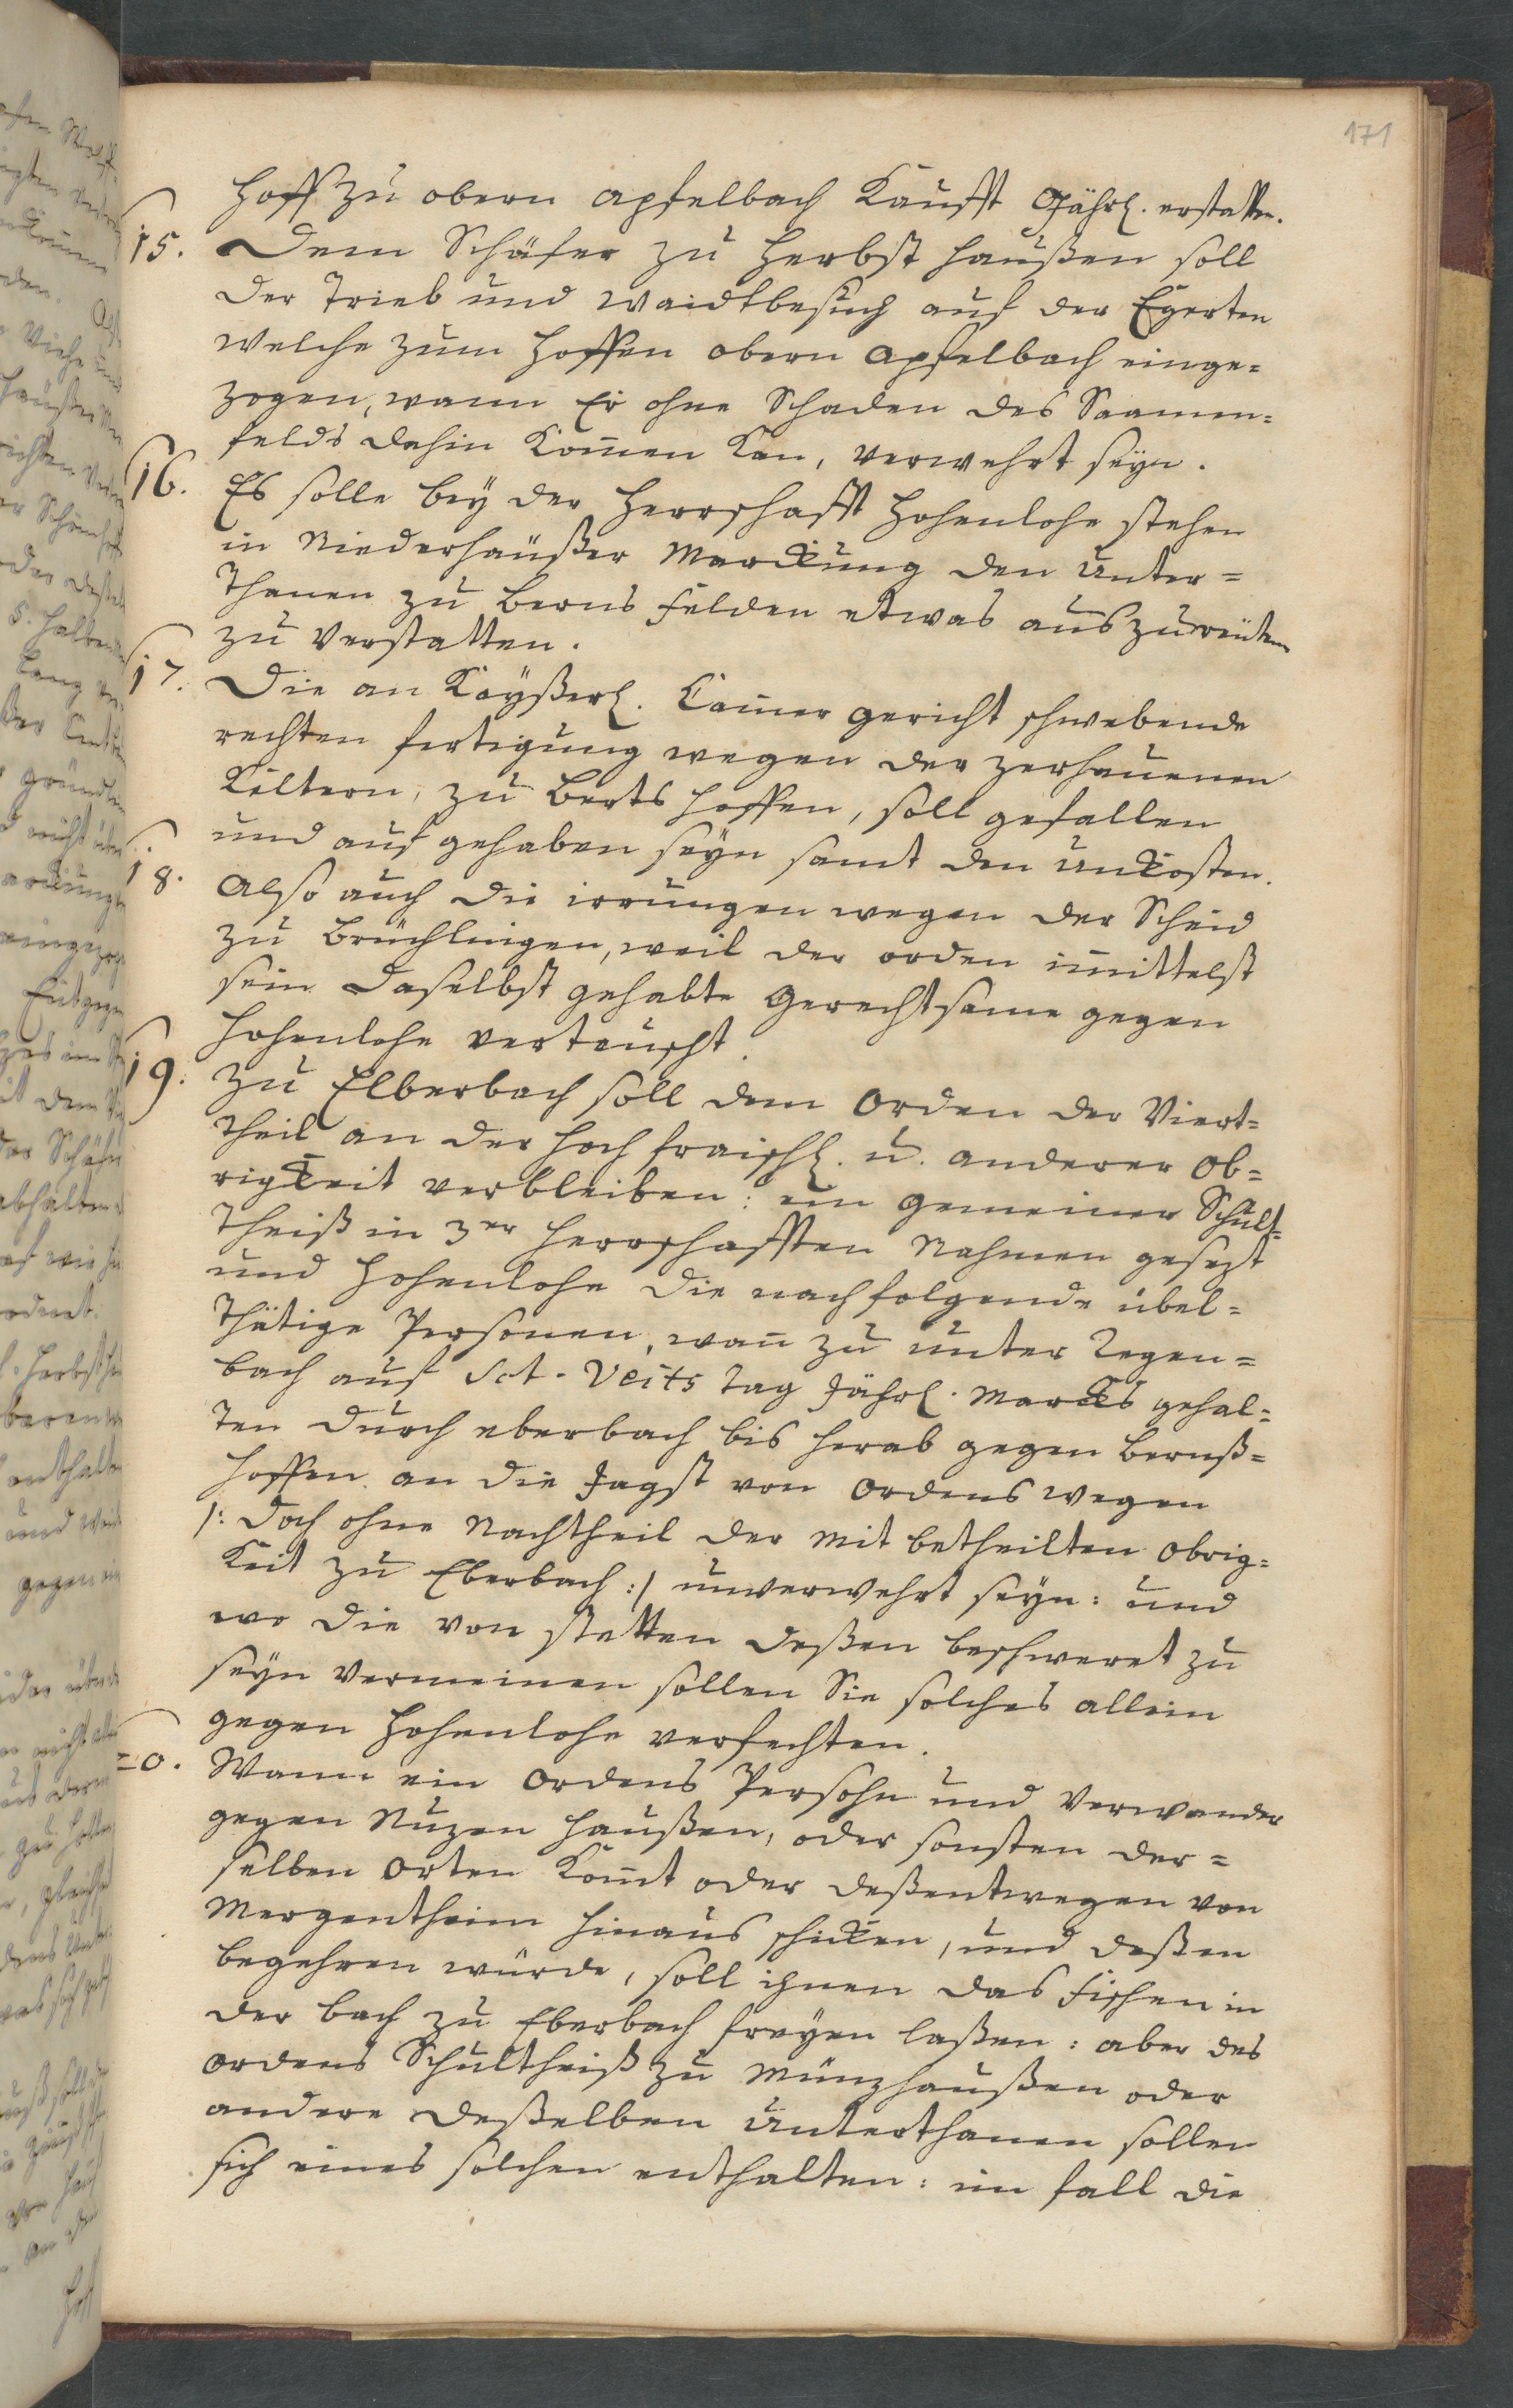 171
Hoff zu obern Apfelbach Kaufft Jährl. erstatten.
15. Dem Schäfer zu Herbst haußen soll
der Trieb und Waidtbesuch auf der Egerten
welche zum Hoffen obern Apfelbach einge=
zogen, wann Er ohne Schaden des Saamen=
felds dahin kom̅en kan, verwehrt seyn.
16. Es solle bey der Herrschafft Hohenlohe stehen
in Niederhaüßer Marckung den Unter=
Thanen zu Berns felden etwas auszureüten
zu verstatten.
17. Die an Kayßerl. Cam̅er gericht schwebende
rechten fertigung wegen der zerhauenen
Keltern, zu Berts hoffen, soll gefallen
und auf gehaben seyn samt den Unkosten.
18. Also auch die irrungen wegen der Scheid
zu Brüchlingen, weil der orden im̅ittelst
sein daselbst gehabte Gerechtsame gegen
Hohenlohe vertauscht.
19. Zu Elberbach soll dem Orden der Viert=
Theil an der Hoch fraischl. u. anderer Ob=
rigkeit verbleiben: ein gemeiner Schult=
Theiß in 3er Herrschafften Nahmen gesezt
und Hohenlohe die nachfolgende übel=
Thätige Personen, wan̅ zu unter Regen=
bach auf Sct. Veits Tag Jährl. Marckts gehal=
ten durch eberbach bis herab gegen Bernß=
hoffen an die Jagst von Ordens wegen
/: doch ohne Nachtheil der Mit betheilten Obrig=
Keit zu Eberbach :/ unverwehrt seyn: und
wo die von Stetten deßen beschweret zu
seyn vermeinen sollen Sie solches allein
gegen Hohenlohe verfechten.
20. Wann ein Ordens Persohn und Verwander
gegen Nuzen haußen, oder sonsten der=
selben Orten kom̅t oder deßentwegen von
Mergentheim hinaus schicken, und deßen
begehren würde, soll ihnen das Fischen in
der bach zu Eberbach freyen laßen: aber des
Ordens Schultheiß zu Münzhaußen oder
andere deßelben Unterthanen sollen
sich eines solchen enthalten: im fall die